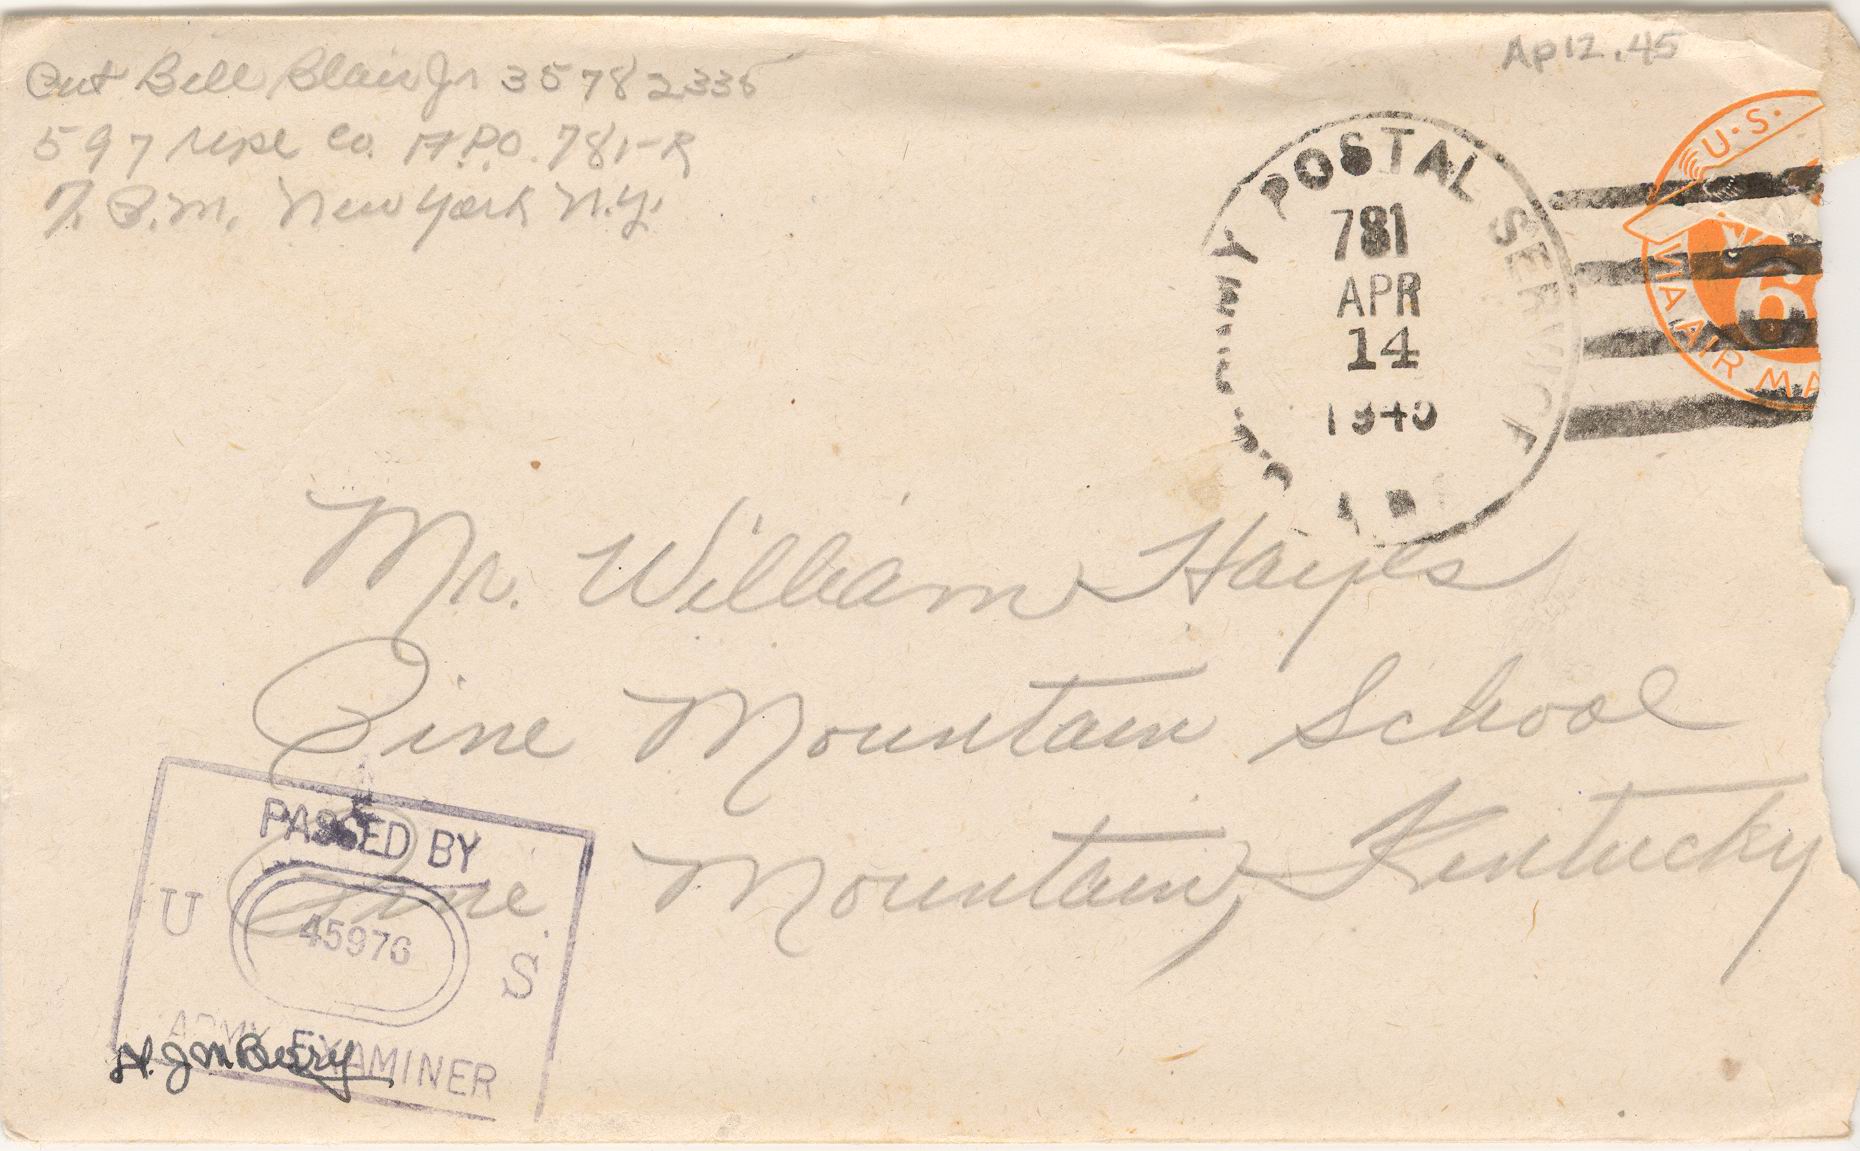 Pvt Bill Blair Jr 35782335
597 Repl Co. A.P.O. 781-R
%P.M. New York N.Y.
Ap 12.45
POSTAL SERVICE
781
APR
14
1945
U.S.
6
VIA AIR MA
Mr. William Hayes
Pine Mountain School
Pine Mountain, Kentucky
PASSED BY
U
45976
S
ARMY EXAMINER